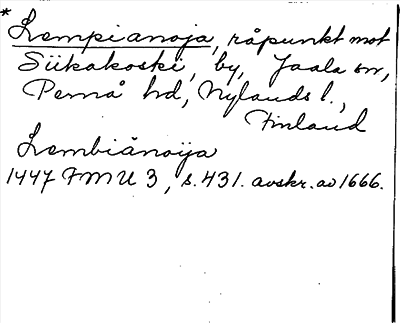 * Lempianoja, råpunkt mot
Siikakoski, by, Jaala sn,
Pernå hd, Nylands l.,
Finland
Lembiänoija
1447 FMU 3, s. 431. avskr. av 1666.